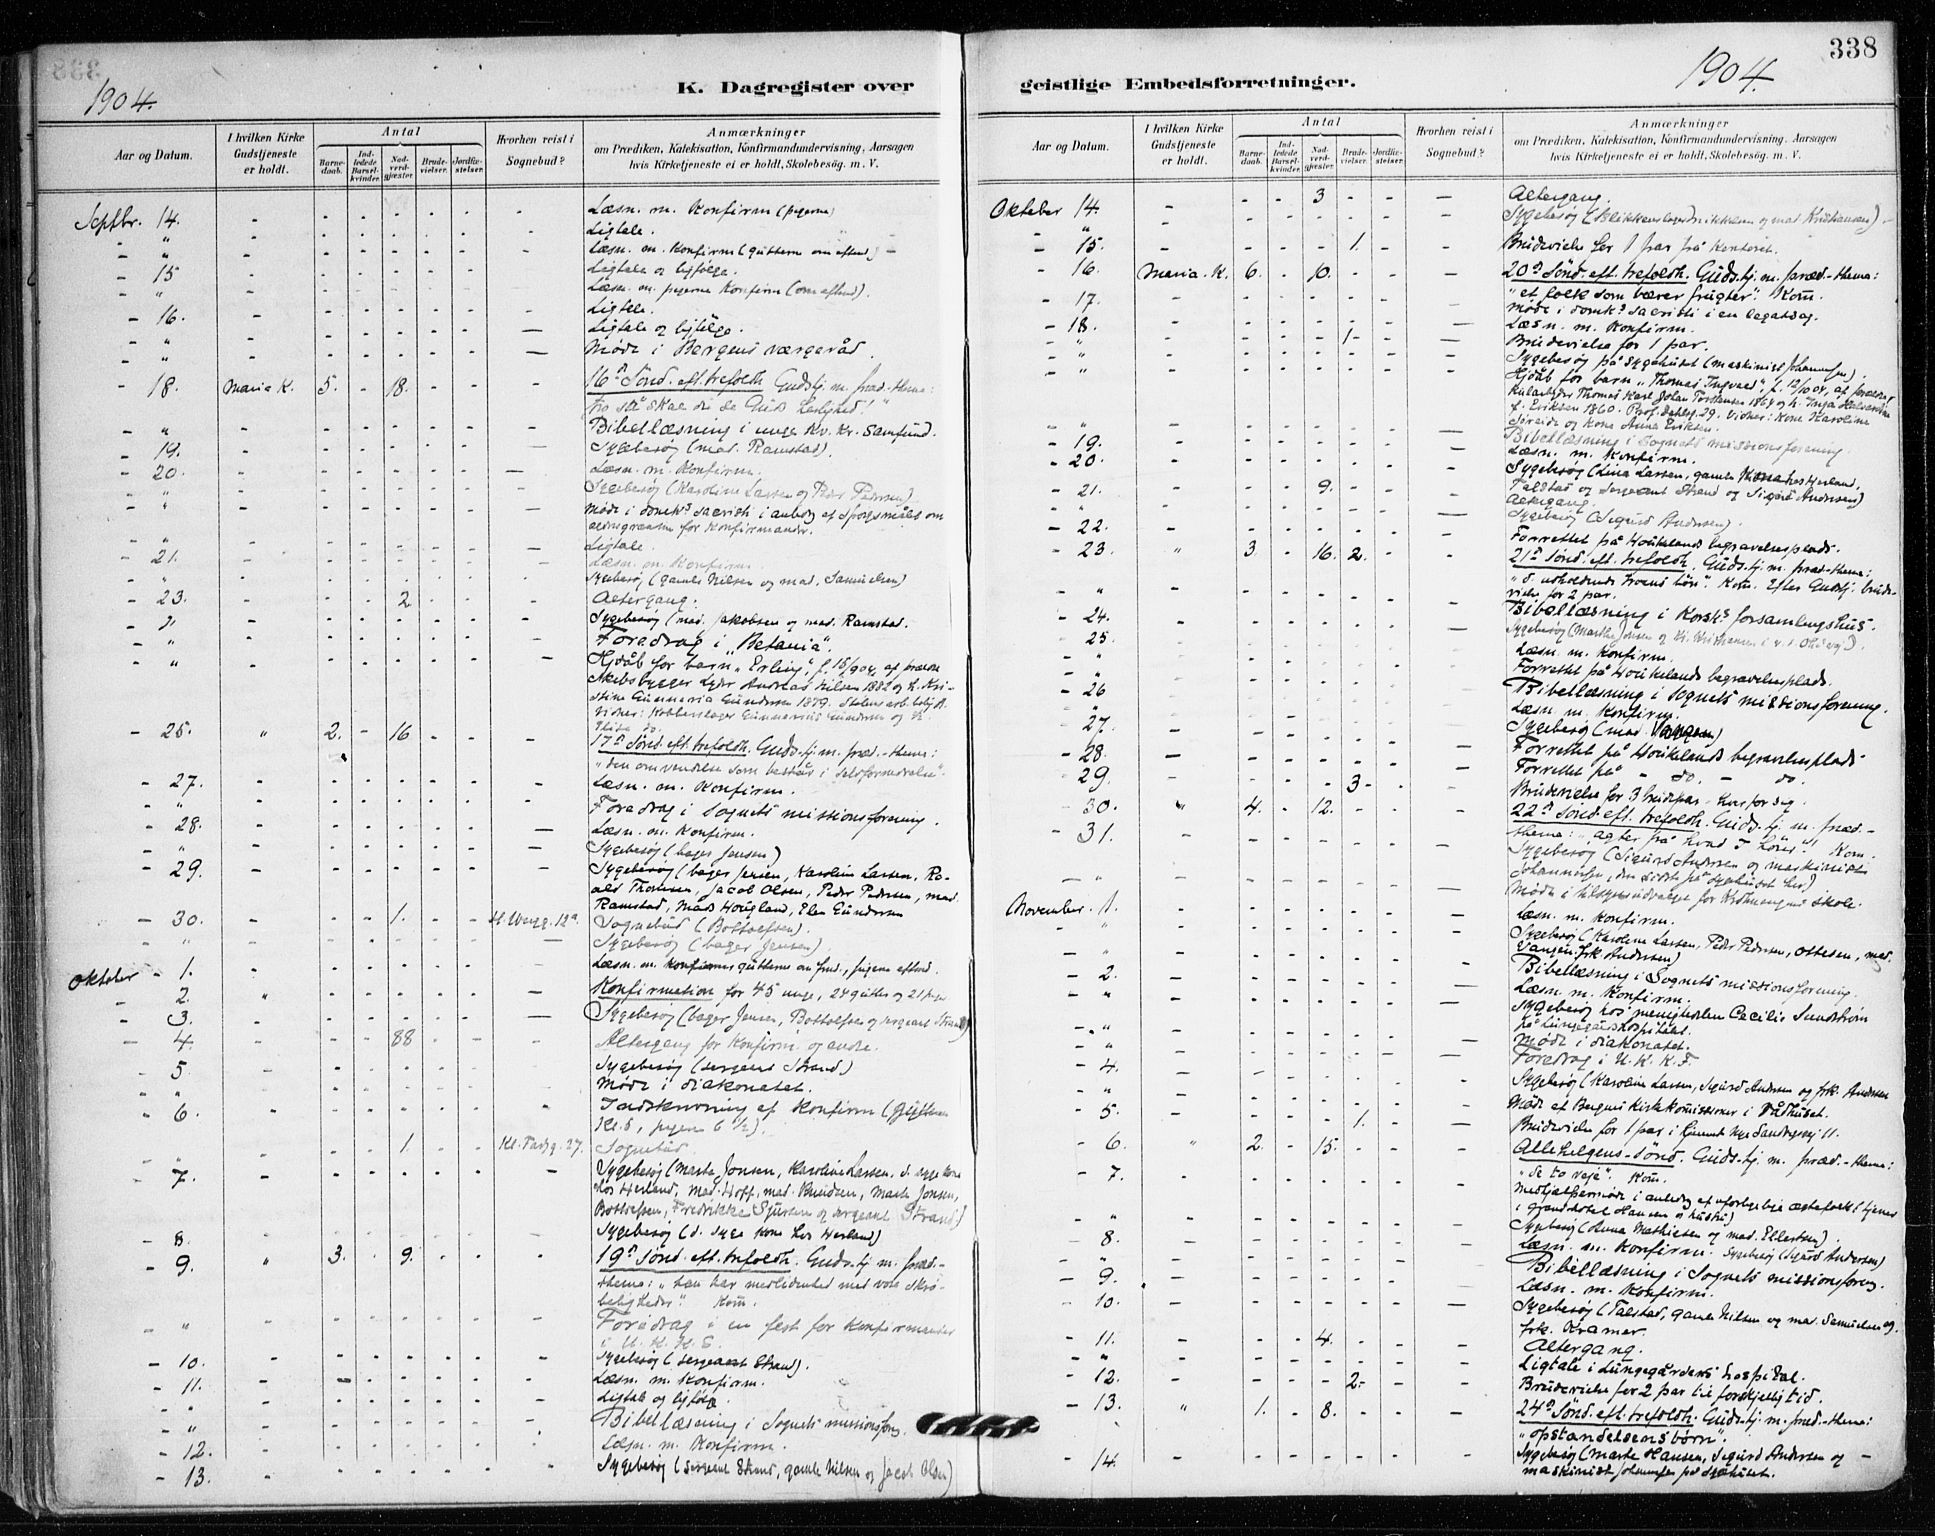 338
1904.
K. Dagregister over
Aar og Datum.
I hvilken Kirke Gudstjeneste er holdt.
Antal
Barnedaab.
Indledede Barselkvinder.
Nadverdgjæster.
Brudevielser.
Jordfæstelser.
Hvorhen reist i Sognebud?
Anmærkninger
om Prædiken, Katekisation, Konfirmandundervisning, Aarsagen
hvis Kirketjeneste ei er holdt, Skolebesög. m. V.
Septbr. 14. - - - - - - - Læsn. m. Konfirm (pigerne)
- " Ligtale.
- " Læsn. m. Konfirm (gutterne om eftmd) -
- 15 Ligtale og ligfölge.
- " Læsn. m. pigerne Konfirm (om eftmd).
- 16. Ligtale.
- " Ligtale og ligfölge.
- " Möde i Bergens værgeråd.
- 18. Maria K. 5. - 18. - - - 16d Sönd. eft. trefoldh. Gudstj. m. præd.-thema:
"tro så skal du se Guds herlighed!"
- " Bibellæsning i unge Kv. Kr. Samfund.
- 19. Sygebesög (mad. Ramstad).
- 20. Læsn. m. Konfirm.
- " Sygebesög (Karoline Larsen og Peder Pedersen).
- " Möde i domk.s sacristi i anledng af Spörgsmålet om
aldersgrænsen for Konfirmander.
- " Ligtale.
- 21. Læsn. m. Konfirm.
- " Sygebesög (gamle Nilsen og mad. Samuelsen)
- 23. 2 Altergang.
- " Sygebesög (mad. Jakobsen og mad. Ramstad.
- " Foredrag i "Betania".
- " Hjdåb for barn "Erling", f. 15/9 04, af forældre
Skibsbygger Andreas Nilsen 1882 og h. Kristine
Gunnaria Gundersen 1879.
Vidner: Kobberslager Gunnerius Gundersen og
- 25. " 2. - 16 - - - 17d Sönd. eft. trefoldh. Gudstj. m. præd.-thema:
"den omvendelse som består i selvfornedrelse".
- 27. Læsn. m. Konfirm.
- " Foredrag i Sognets missionsforening.
- 28. Læsn. m. Konfirm.
- " Sygebesög (bager Jensen)
- 29. Sygebesög (bager Jensen, Karoline Larsen, Roald
Thorsen, Jacob Olsen, Peder Pedersen, mad.
Ramstad, Mads Hougland, Elen Gundersen
- 30. 1. Sognebud (Bottolfsen).
- " Sygebesög (bager Jensen).
Oktober - 1. Læsn. m. Konfirm gutterne om fmd., pigerne eftmd.
- 2. " Konfirmation for 45 unge, 24 gutter og 21 piger
- 3. Sygebesög (bager Jensen, Bottolfsen og sergeant Strand)
- 4. 88 Altergang for Konfirm. og andre.
- 5 Sygebesög (sergeant Strand)
- " Möde i diakonatet.
- 6. Indskrivning af Konfirm (gutterne
Kl. 5, pigerne 6 1/2).
- " 1. Sognebud.
- 7. Sygebesög (Marte Jonsen, Karoline Larsen, d. syge kone
hos Herland, mad. Hoff, mad. Knudsen, Marte Jonsen,
Bottolfsen, Fredrikke Sjursen og sergeant Strand.)
- 8. Sygebesög (d. syge kone hos Herland)
- 9. " 3. - 9. - - - 19d Sönd. eft. trefoldh. Gudstj. m. præd.-
thema: "han har medlidenhed med vore skröbeligheder".
Kom.
- " Foredrag i en fest for Konfirmander
i U. K. K. F.
- 10. Sygebesög (sergeant Strand).
- 11. Læsn. m. Konfirm.
- " Ligtale og ligfölge
- " Bibellæsning i Sognets missionsforng.
- 12. Læsn. m. Konfirm.
- 13. Sygebesög (sergeant Strand, gamle Nilsen og Jacob Olsen)
338
1904.
geistlige Embedsforretninger.
Aar og Datum.
I hvilken Kirke Gudstjeneste er holdt.
Antal
Barnedaab.
Indledede Barselkvinder.
Nadverdgjæster.
Brudevielser.
Jordfæstelser.
Hvorhen reist i Sognebud?
Anmærkninger
om Prædiken, Katekisation, Konfirmandundervisning, Aarsagen
hvis Kirketjeneste ei er holdt, Skolebesög. m. V.
Oktober 14. 3 Altergang.
- " Sygebesög (Blikkenslager og mad. Kristiansen)
- 15. 1. Brudevielse for 1 par på Kontoret.
- 16. Maria. K. 6. - 10. - - - 20d Sönd. eft. trefoldh. Gudstj. m. præd.-thema:
"et folk som bærer frugter". Kom.
- 17. Möde i domk.s sacristi i en legatsag.
- 18. Læsn. m. Konfirm.
- " 1- Brudevielse for 1 par.
- " Sygebesög på Sygehuset (maskinist Johannessen).
- " Hjdåb for barn "Thomas Ingvald", f. 12/10 04, af forældre
Thomas Karl Johan Torstensen 1864 og h. Inga
f. Eriksen 1860. Vidner: Kone Karoline
og Kone Anna Eriksen.
- 19. Bibellæsning i Sognets missionsforening.
- 20. Læsn. m. Konfirm.
- " Sygebesög (Lina Larsen, gamle Herland,
Talstad og sergeant Strand og Sigurd Andersen)
- 21. 9. Altergang.
- " Sygebesög (Sigurd Andersen).
- 22. Forrettet på Houkelands begravelsesplads.
- 23. " 3. - 16. 2. - - 21d Sönd. eft. trefoldh. Gudstj. m. præd.-thema:
"d. udholdende troens lön". Kom. Efter Gudstj. brudevielse
for 2 par.
- " Bibellæsning i Korsk.s forsamlingshus.
- 24. Sygebesög (Marthe Jonsen og Kristiansen)
- 25. Læsn. m. Konfirm.
- " Forrettet på Houkelands begravelsesplads.
- " Bibellæsning i Sognets missionsforening.
- 26 Læsn. m. Konfirm.
- " Sygebesög (mad. Vangen)
- 27. Forrettet på Houkelands begravelsesplads
- 28. Forrettet på " do. - do.
- 29. 3- Brudevielse for 3 brudepar - hver for sig.
- 30. " 4. - 12. - - - 22d Sönd. eft. trefoldh. Gudstj. m. præd.-
thema: "agter på hvad I hörer!" Kom.
- 31. Sygebesög (Sigurd Andersen og maskinist
Johannessen, den sidste på Sygehuset her)
- " Möde i tilsynsudvalget for Kristiengens skole.
November. 1. Læsn. m. Konfirm.
- " Sygebesög (Karoline Larsen, Peder Pedersen, Ottesen, mad.
Vangen, frk Andersen)
- " Bibellæsning i Sognets missionsforening.
- 2. Læsn. m. Konfirm.
- " Sygebesög hos menigheden Cecilie Sundström
på Lungegårdshospitalet.
- " Möde i diakonatet.
- " Foredrag i U. K. K. F.
- 4. Sygebesög (Karoline Larsen, Sigurd Andersen og frk. Andersen
- " Möde af Bergens Kirkekomissioner i Rådhuset.
- 5 1. Brudevielse for 1 par i hjemmet Nye Sandviksvej 11.
- 6. " 2. - 15. - - - Allehelgens-sönd. Gudstj. m. præd.-thema:
"de to veje". Kom.
- 7. Medhjælpermöde i anledng af uforligelige ægtefolk (tjener
i grand hotel Hansen og hustru)
- " Sygebesög (Anna Mathiesen og mad. Ellertsen).
- 8. Læsn. m. Konfirm. Sygebesög (Sigurd Andersen)
- " Bibellæsning i Sognets missionsforeng.
- 9. Læsn. m. Konfirm.
- 10. Sygebesög (Talstad, gamle Nilsen og mad. Samuelsen og
frk. Kramer.
- 11. 4. Altergang.
- " Ligtale i Lungegårdens hospital.
- 12. 2- Brudevielse for 2 par til forskjellig tid.
- 13. " 1. - 8. - - - 24d Sönd. eft. trefoldh. Gudstj. m. præd.-thema:
"opstandelsens börn".
- 14. Sygebesög (Marte Hansen, Sigurd Andersen og -
maskinist Johannessen på Sygehuset.